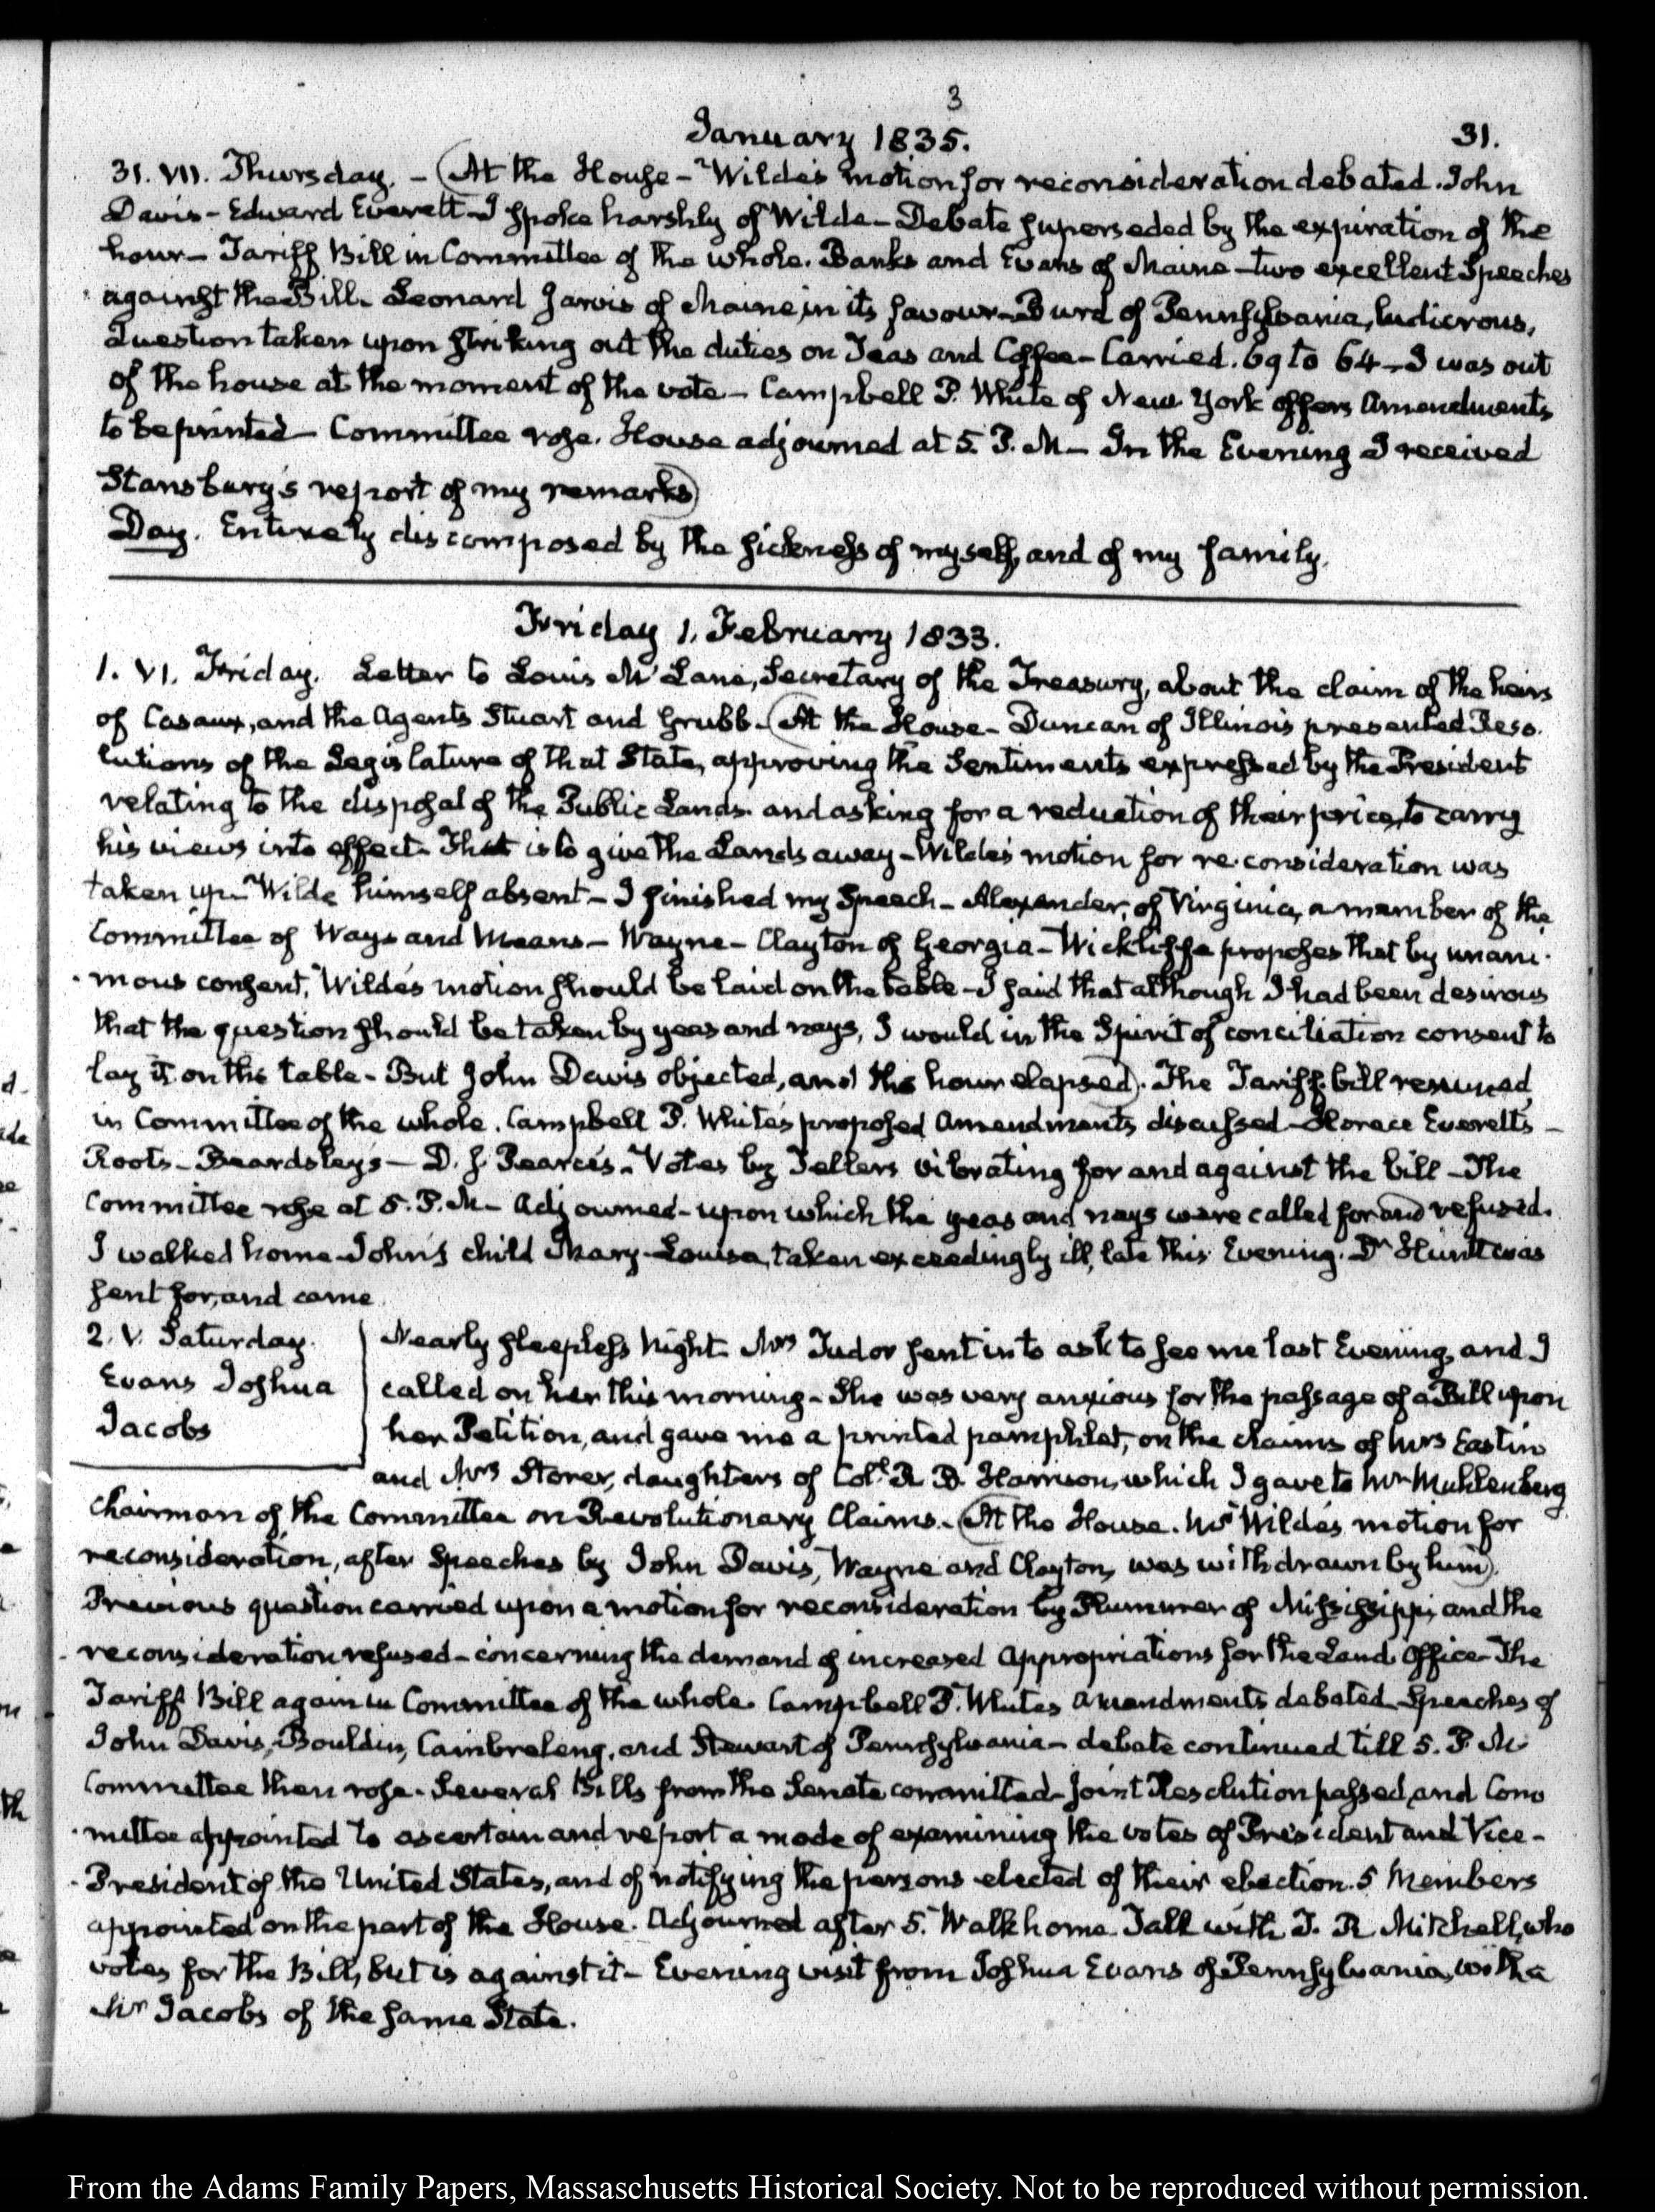 3
January 1835. 31.
31. VII. Thursday. - (At the House - Wilde's motion for reconsideration debated. John
Davis - Edward Everett - I spoke harshly of Wilde - Debate superseded by the expiration of the
hour - Tariff Bill in Committee of the whole. Banks and Evans of Maine - two excellent Speeches
against the Bill. Leonard Jarvis of Maine, in its favour - Burd of Pennsylvania, ludicrous,
Question taken upon striking out the duties on Teas and Coffee - Carried. 69 to 64 - I was out
of the house at the moment of the vote - Campbell P. White of New York offers Amendments
to be printed - Committee rose. House adjourned at 5. P.M - In the Evening I received
Stansbury's report of my remarks)
Day. Entirely discomposed by the sickness of myself, and of my family.
Friday 1. February 1833.
1. VI. Friday. Letter to Louis McLane, Secretary of the Treasury, about the claim of the heirs
of Casaux, and the Agents Stuart and Grubb - (At the House - Duncan of Illinois presented Reso-
lutions of the Legislature of that State, approving the Sentiments expressed by the President
relating to the disposal of the Public Lands and asking for a reduction of their price, to carry
his views into effect - That is to give the Lands away - Wilde's motion for re-consideration was
taken up - Wilde himself absent - I finished my Speech - Alexander, of Virginia, a member of the
Committee of Ways and Means - Wayne - Clayton of Georgia - Wickliffe proposes that by unani-
mous consent, Wilde's motion should be laid on the table - I said that although I had been desirous
that the question should be taken by yeas and nays, I would in the Spirit of conciliation consent to
lay it on the table - But John Davis objected, and the hour elapsed). The Tariff bill resumed,
in Committee of the whole. Campbell P. White's proposed Amendments discussed - Horace Everett's -
Roots - Beardsley's - D. J. Pearce's - Votes by Tellers vibrating for and against the bill - The
Committee rose at 5. P.M - Adjourned - upon which the yeas and nays were called for and refused.
I walked home - John's child Mary-Louisa, taken exceedingly ill, late this Evening. Dr Hunt was
sent for, and came
2. V. Saturday. Nearly sleepless Night. Mrs Tudor sent in to ask to see me last Evening, and I
Evans Joshua called on her this morning - She was very anxious for the passage of a Bill upon
Jacobs her Petition, and gave me a printed pamphlet, on the claims of Mrs Eastin
and Mrs Storer, daughters of Coll R. H. Harrison, which I gave to Mr Muhlenberg
Chairman of the Committee on Revolutionary Claims. - (At the House. Mr Wilde's motion for
reconsideration, after Speeches by John Davis, Wayne and Clayton, was withdrawn by him).
Previous question carried upon a motion for reconsideration by Plummer of Mississippi, and the
reconsideration refused - concerning the demand of increased Appropriations for the Land Office - The
Tariff Bill again in Committee of the whole. Campbell P. White's Amendments debated - Speeches of
John Davis, Bouldin, Cambreleng, and Stewart of Pennsylvania - debate continued till 5. P.M.
Committee then rose. Several Bills from the Senate committed - Joint Resolution passed, and Com-
mittee appointed to ascertain and report a mode of examining the votes of President and Vice-
President of the United States, and of notifying the persons elected of their election. 5 Members
appointed on the part of the House. Adjourned after 5. Walk home. Talk with T. R. Mitchell, who
votes for the Bill, but is against it - Evening visit from Joshua Evans of Pennsylvania, with a
Mr Jacobs of the same State.
From the Adams Family Papers, Massachusetts Historical Society. Not to be reproduced without permission.